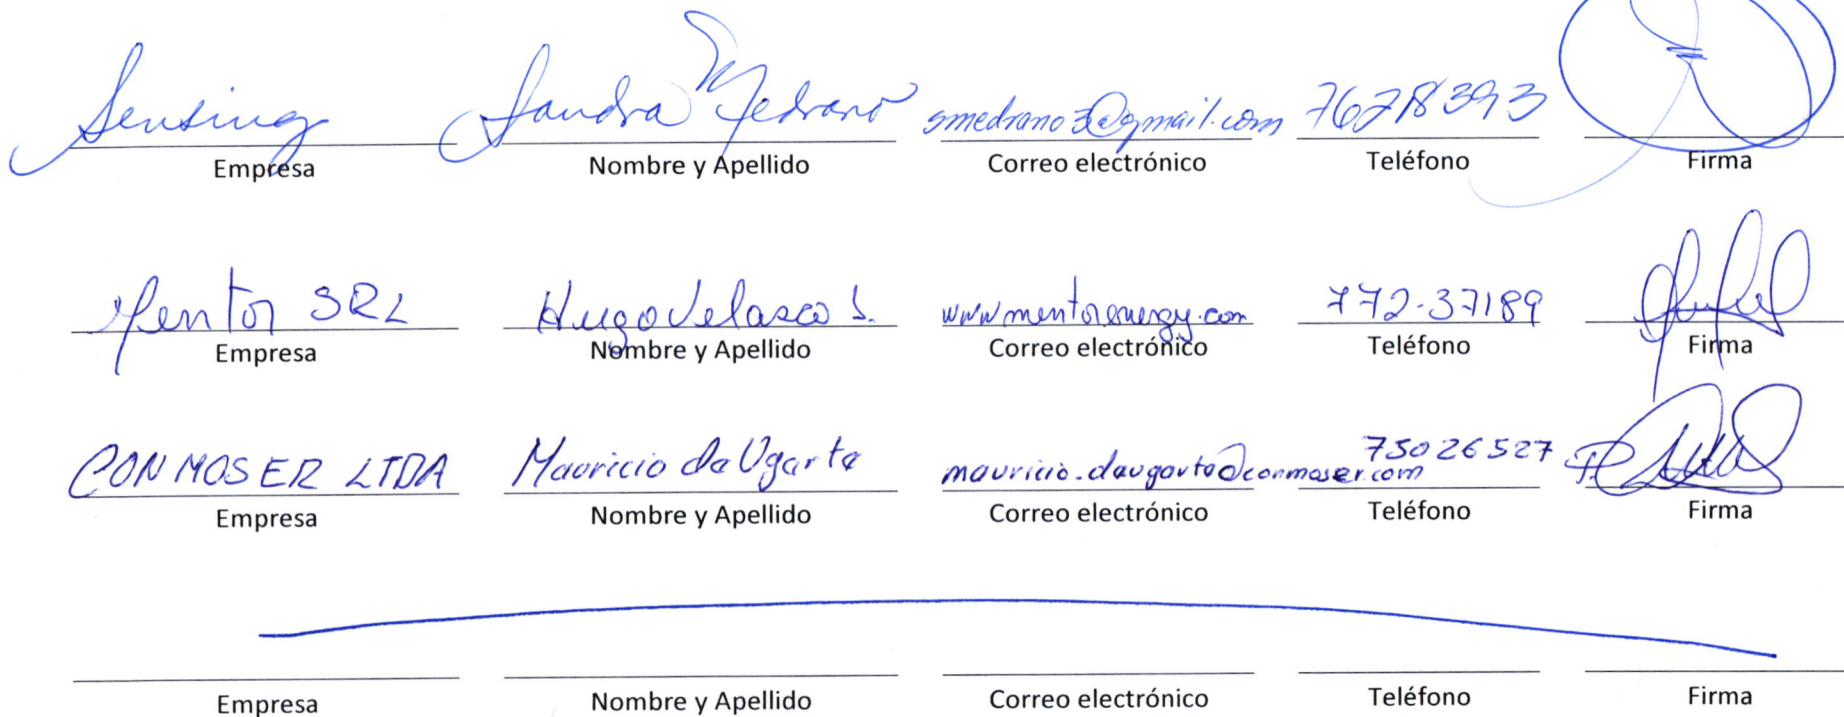 Sensing Sandra Medrano smedrano3@gmail.com 76278393
Empresa Nombre y Apellido Correo electrónico Teléfono Firma
Mentor SRL Hugo Velasco S. www.mentorenergy.com 772-37189
Empresa Nombre y Apellido Correo electrónico Teléfono Firma
CONMOSER LTDA Mauricio daUgarte mauricio.daugarte@conmoser.com 75026527
Empresa Nombre y Apellido Correo electrónico Teléfono Firma
Empresa Nombre y Apellido Correo electrónico Teléfono Firma